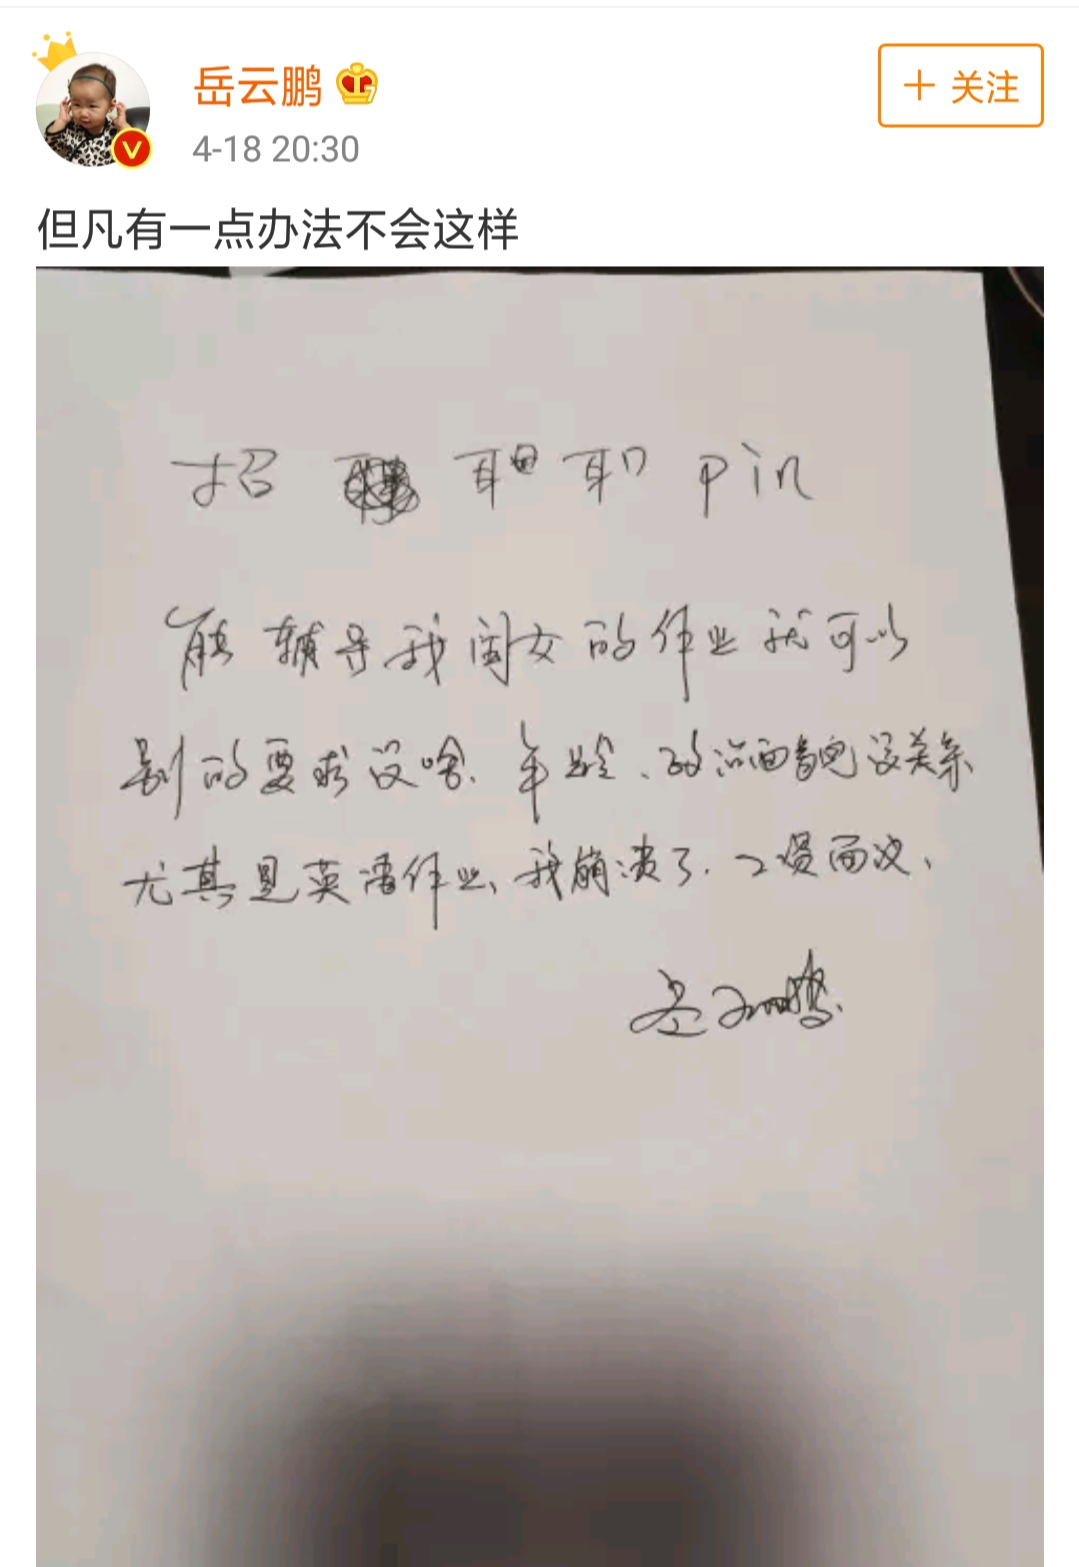 岳云鹏
+ 关注
4-18 20:30
但凡有一点办法不会这样
招 pin
能辅导我闺女的作业就可以
别的要求没啥、年龄、政治面貌没关系
尤其是英语作业、我崩溃了.工资面议、
岳云鹏